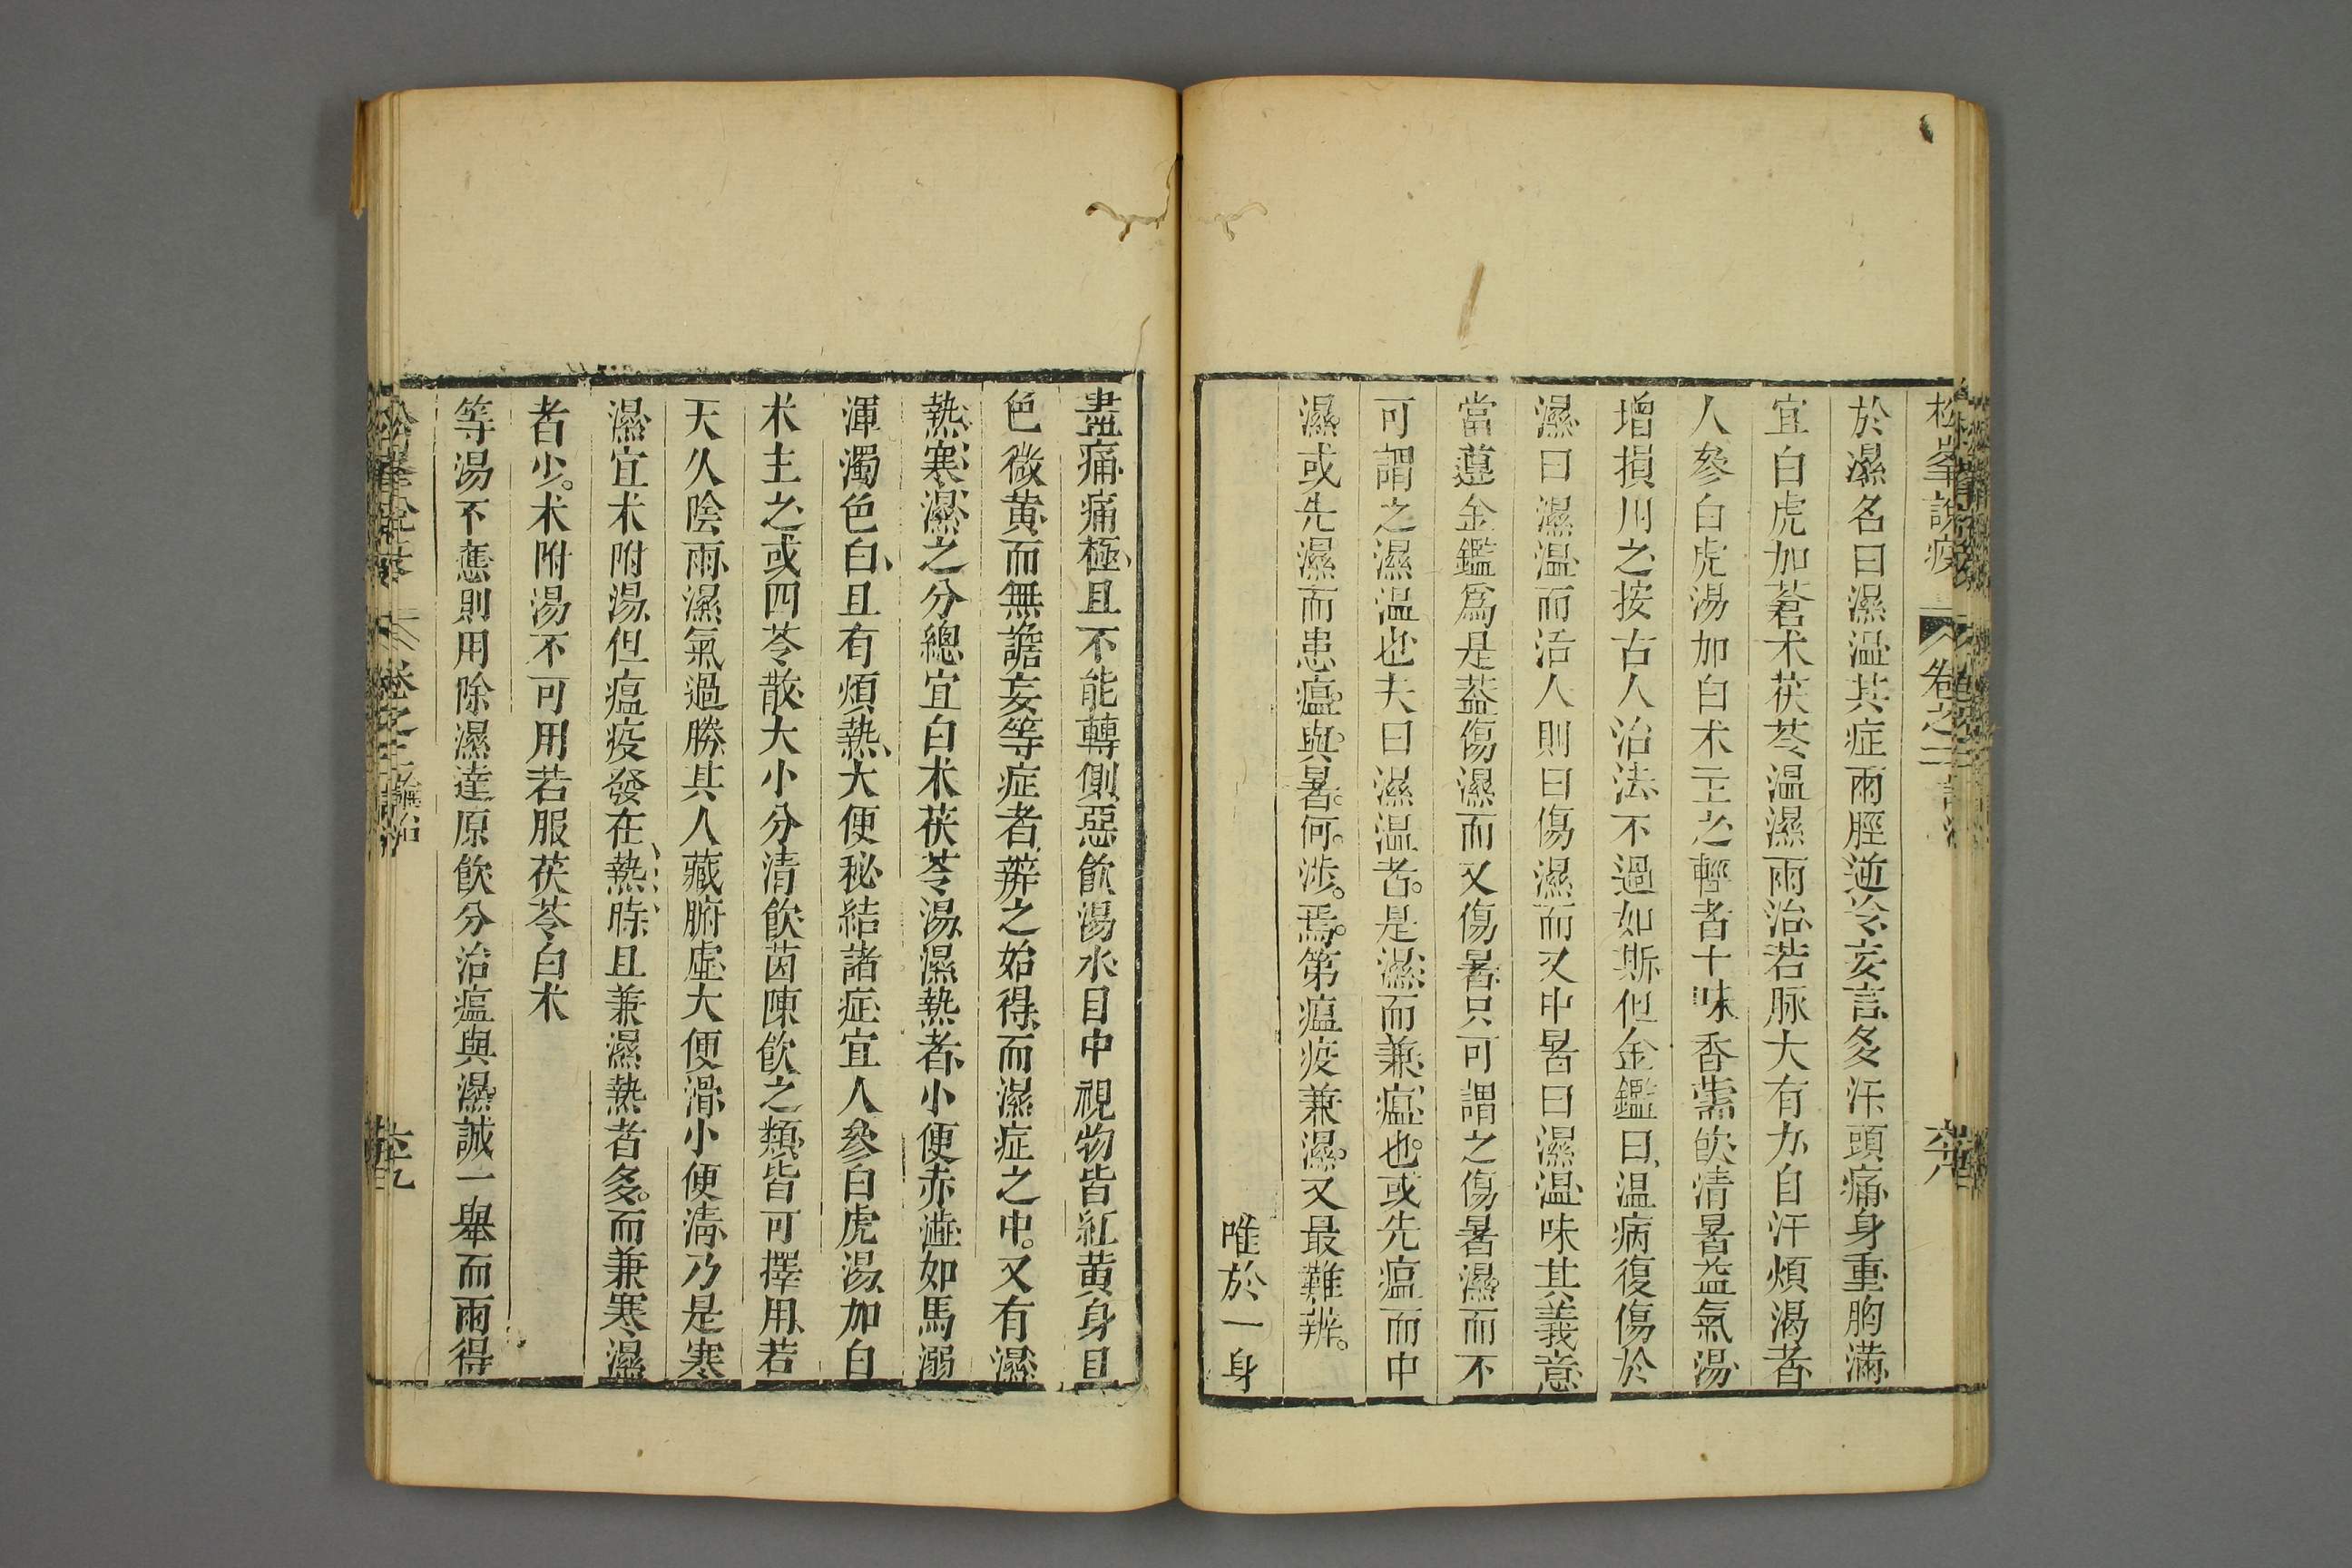 松峯說疫
卷之二
六十八
於濕名曰濕溫其症兩脛逆冷妄言多汗頭痛身重胸滿
宜白虎加蒼术茯苓温濕兩治若脉大有力自汗煩渴者
人參白虎湯加白术主之輕者十味香薷飲清暑益氣湯
增損用之按古人治法不過如斯但金鑑曰温病復傷於
濕曰濕温而活人則曰傷濕而又中暑曰濕温味其義意
當遵金鑑爲是葢傷濕而又傷暑只可謂之傷暑濕而不
可謂之濕温也夫曰濕温者。是濕而兼瘟也。或先瘟而中
濕或先濕而患瘟。與。暑。何。涉。焉。第瘟疫兼濕。又最難辨。
唯於一身
盡痛、痛極、且不能轉側、惡飲湯水、目中視物皆紅黄、身目
色微黄、而無譫妄等症者、辨之始得、而濕症之中。又有濕
熱、寒濕、之分、總宜白术茯苓湯、濕熱者、小便赤澁如馬溺
渾濁色白、且有煩熱、大便秘結諸症、宜人參白虎湯、加白
术主之、或四苓散、大小分清飲、茵陳飲之類、皆可擇用、若
天久陰雨、濕氣過勝、其人藏腑虛、大便滑、小便淸、乃是寒
濕、宜术附湯、但瘟疫發在熱時、且兼濕熱者多。而兼寒濕
者少。术附湯不可用若服茯苓白术
等湯不應則用除濕達原飲分治瘟與濕誠一舉而兩得